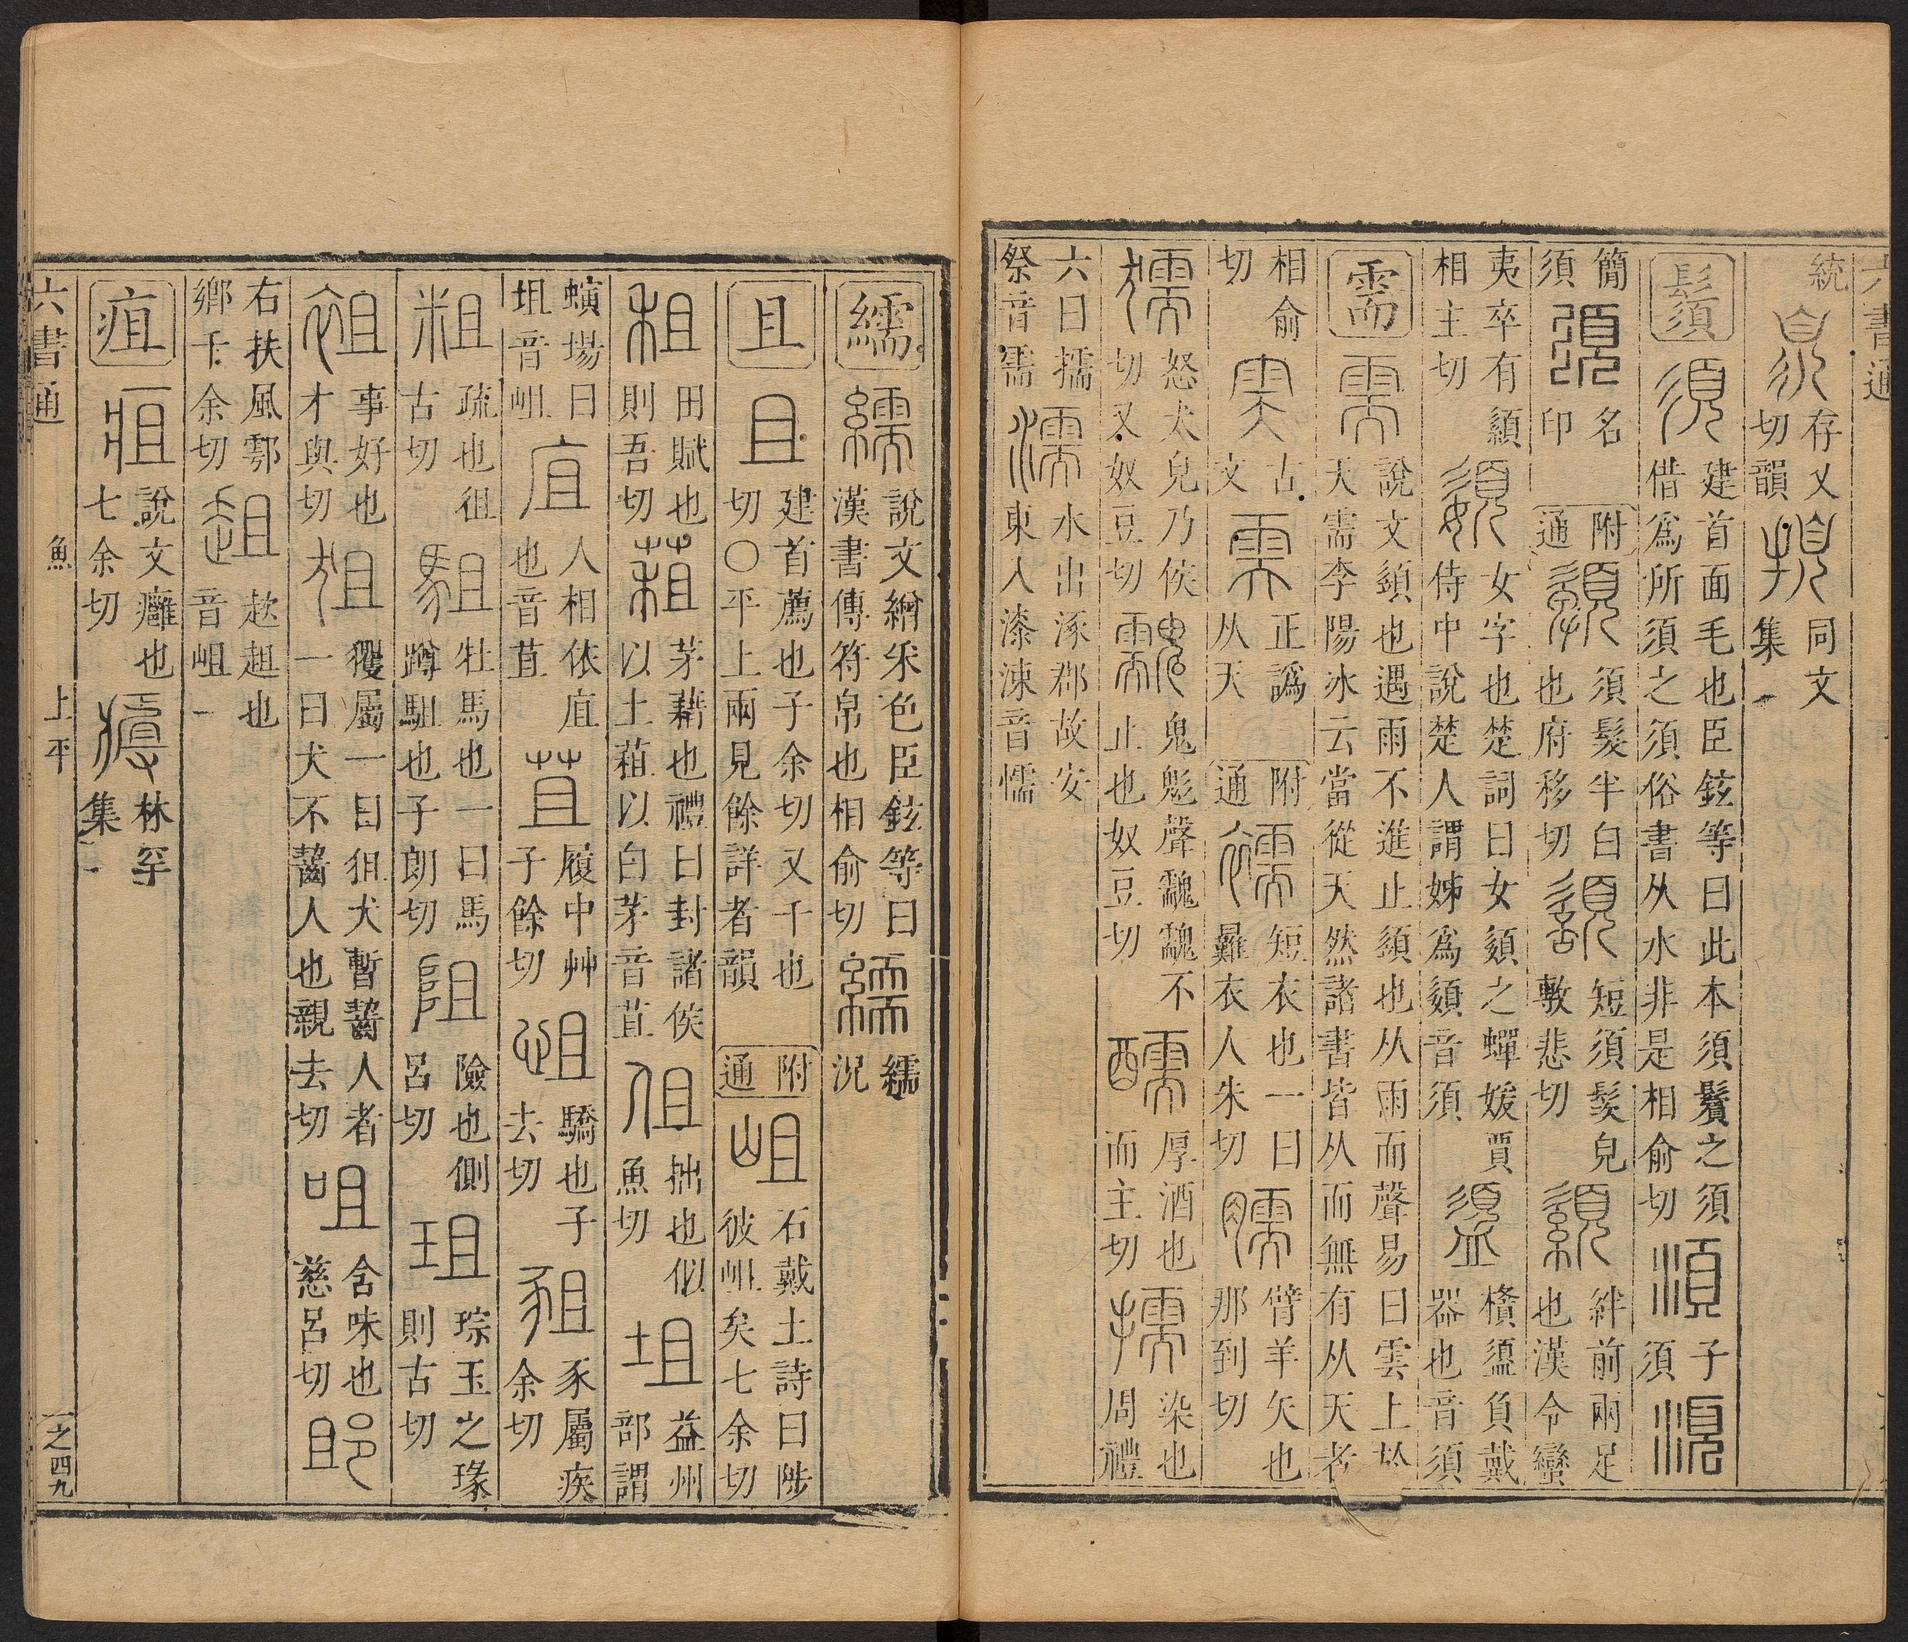 六書通
統
存又
切韻
同文
集一
鬚
建首面毛也臣鉉等曰此本須鬢之須
借爲所須之須俗書从水非是相俞切
子
須
簡
須
名
印
附
通
須髮半白
也府移切
短須髮皃
敷悲切
絆前兩足
也漢令蠻
夷卒有䫂
相主切
女字也楚詞曰女嬃之蟬媛賈
侍中說楚人謂姊爲嬃音須
㰅䇓負戴
器也音須
需
說文䇓也遇雨不進止䇓也从雨而聲易曰雲上於
天需李陽冰云當從天然諸書皆从而無有从天者
相俞
切
古
文
正譌
从天
附
通
短衣也一曰
㬮衣人朱切
臂羊矢也
那到切
怒犬皃乃侯
切又奴豆切
鬼鬽聲䰰䰰不
止也奴豆切
厚酒也
而主切
染也
周禮
六曰擩
祭音需
水出涿郡故安
東入漆涑音懦
繻
說文繒采色臣鉉等曰
漢書傳符帛也相俞切
繻
況
且
建首薦也子余切又千也
切〇平上兩見餘詳者韻
附
通
石戴土詩曰陟
彼岨矣七余切
田賦也
則吾切
茅藉也禮曰封諸侯
以土蒩以白茅音苴
拙也似
魚切
益州
部謂
螾場曰
坥音岨
人相依㡹
也音苴
履中艸
子餘切
驕也子
去切
豕屬疾
余切
疏也徂
古切
牡馬也一曰馬
蹲駔也子朗切
險也側
呂切
琮玉之瑑
則古切
事好也
才與切
玃屬一曰狙犬暫齧人者
一曰犬不齧人也親去切
含味也
慈呂切
右扶風鄠
鄉千余切
趑趄也
音岨
疽
說文癰也
七余切
林罕
集一
六書通
魚
上平
一之四九